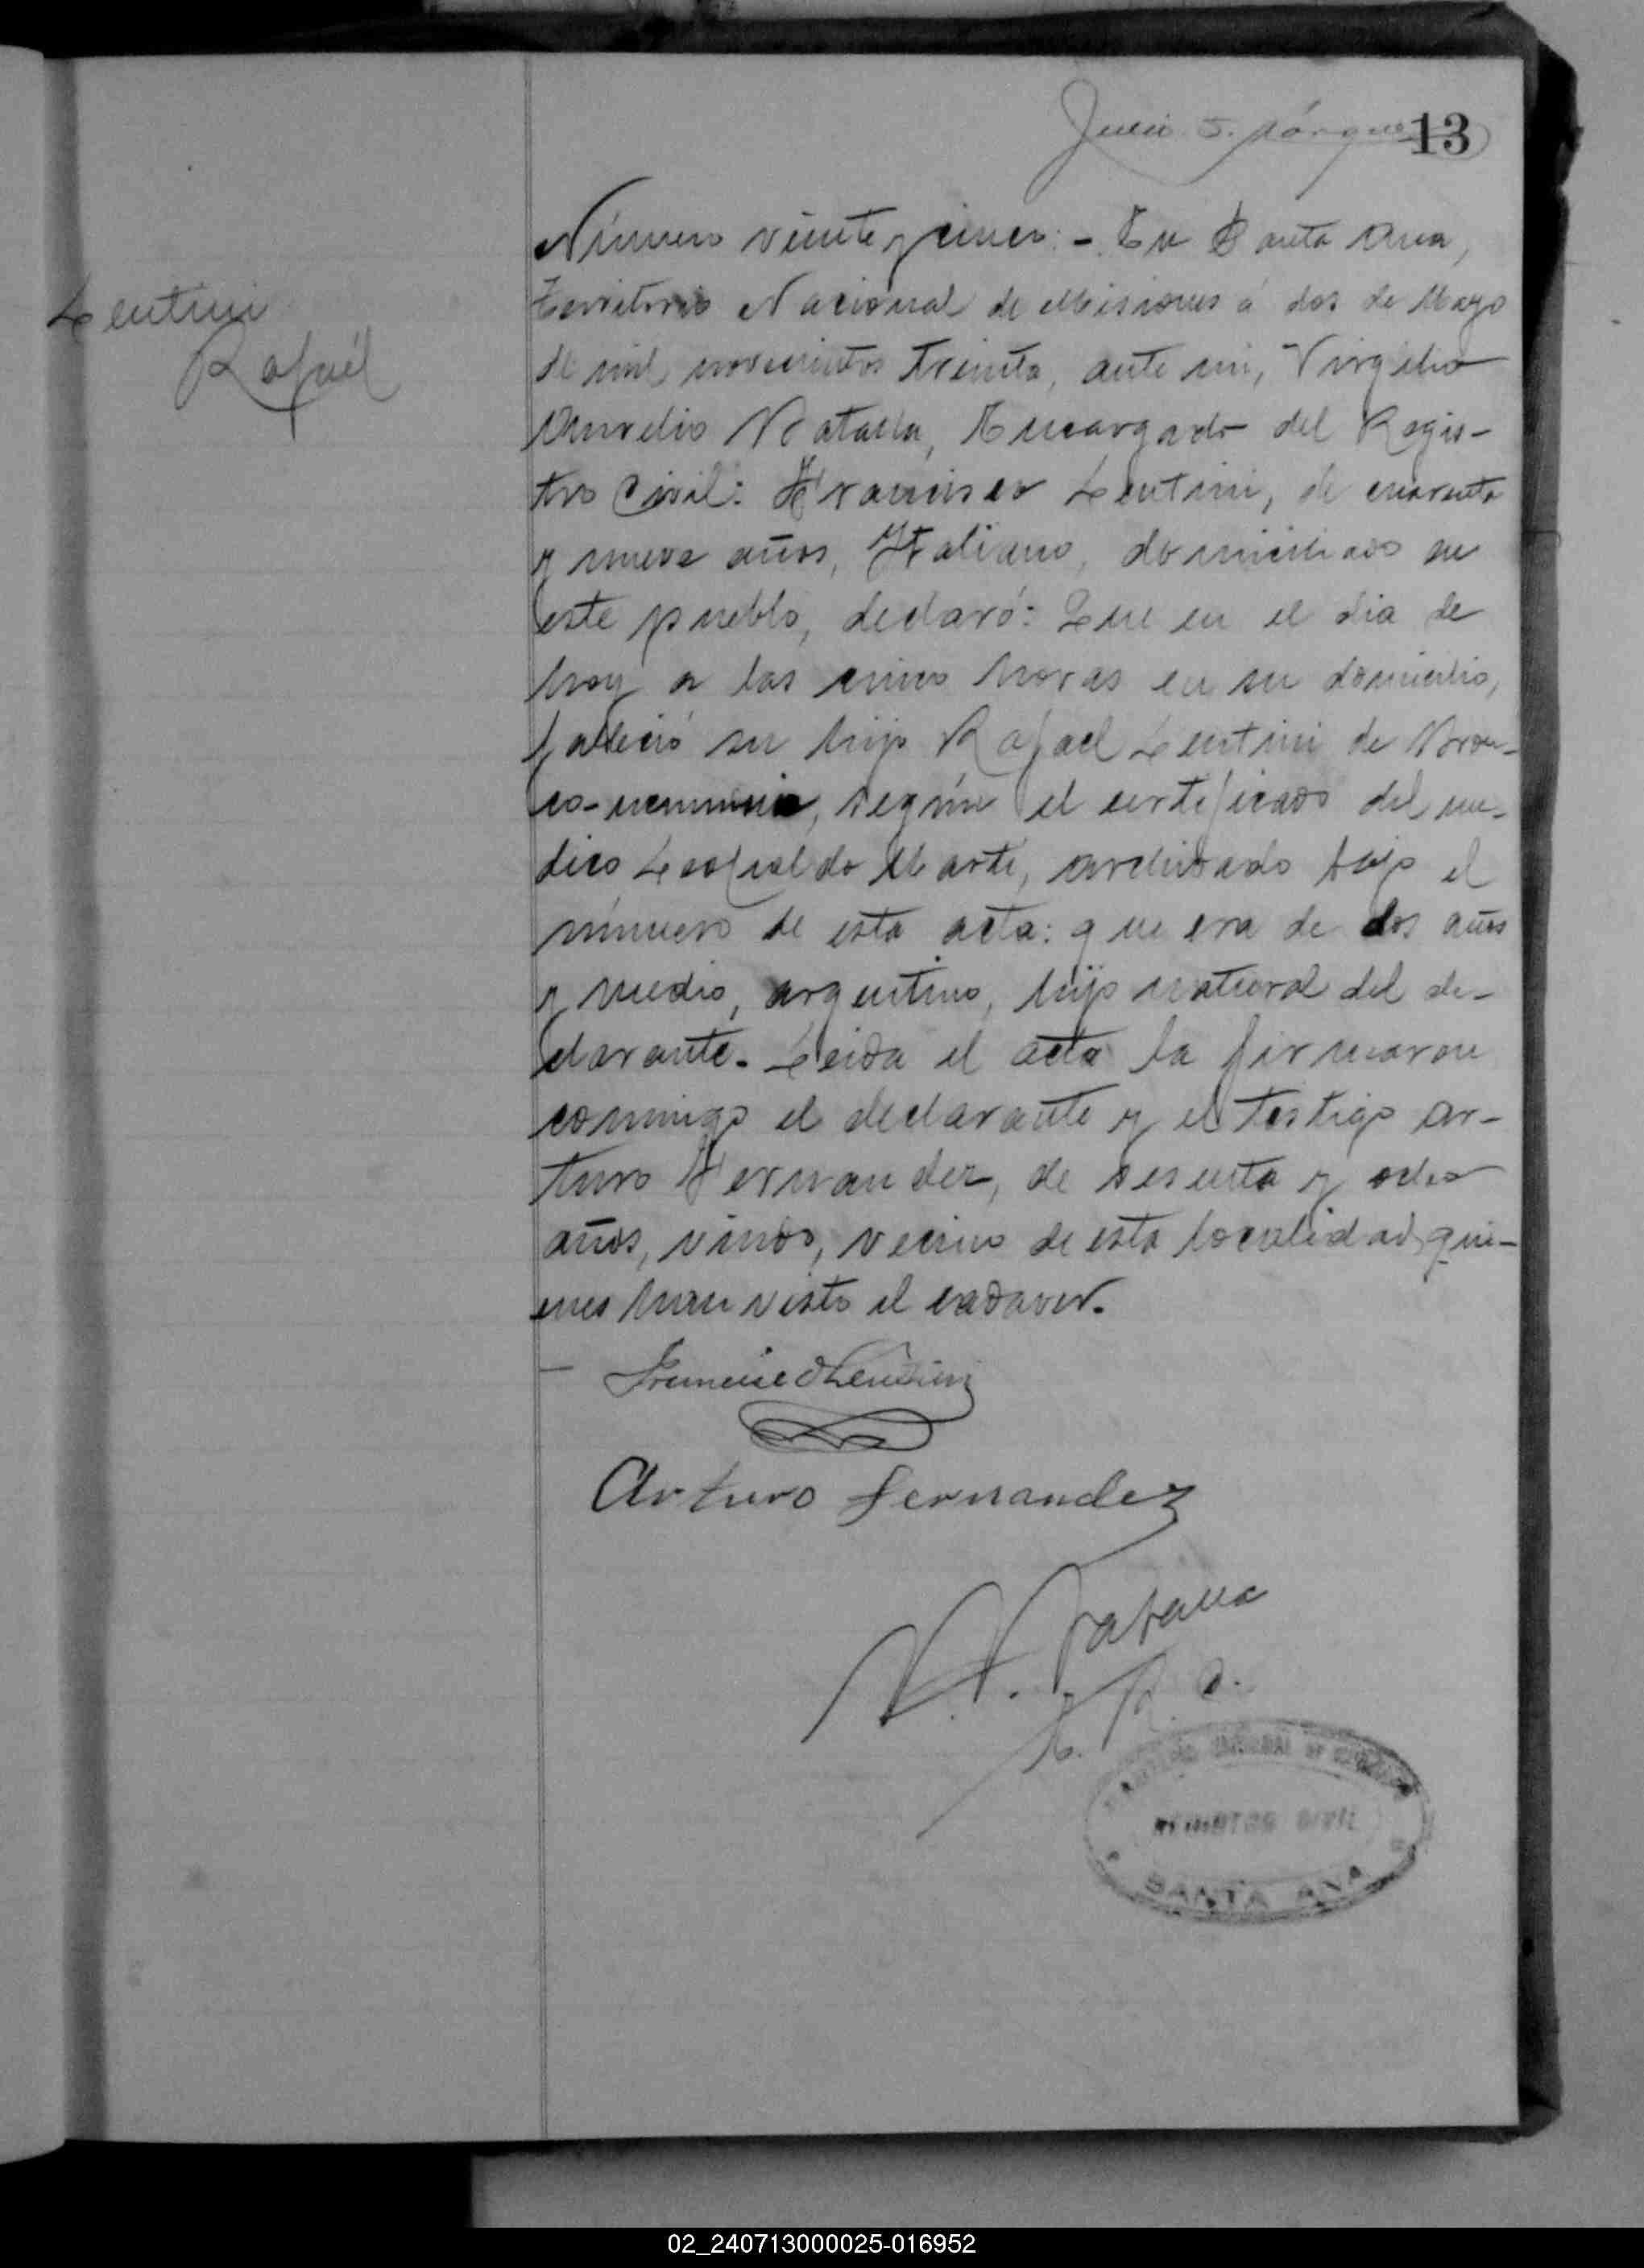 13
Lentini
Rafaél
Número veinte y cinco:-. En Santa Ana,
Territorio Nacional de Misiones á dos de Mayo
de mil novecientos treinta, ante mi, Virgilio
Aurelio Natalla, Encargado del Regis-
tro Civil: Francisco Lentini, de cuarenta
y nueve años, Italiano, domiciliado en
este pueblo, declaró: Que en el dia de
hoy a las cinco horas en su domicilio,
falleció su hijo Rafael Lentini de Bron-
co-neumonia, según el certificado del me-
dico Leopoldo Marti, archivado bajo el
número de esta acta: que era de dos años
y medio, argentino, hijo natural del de-
clarante. Leida el acta la firmaron
conmigo el declarante y el testigo Ar-
turo Fernandez, de sesenta y ocho
años, viudo, vecino de esta localidad, qui-
enes han visto el cadaver.
Francisco Lentini
Arturo Fernandez
E. R. C.
REGISTRO CIVIL
SANTA ANA
02_240713000025-016952